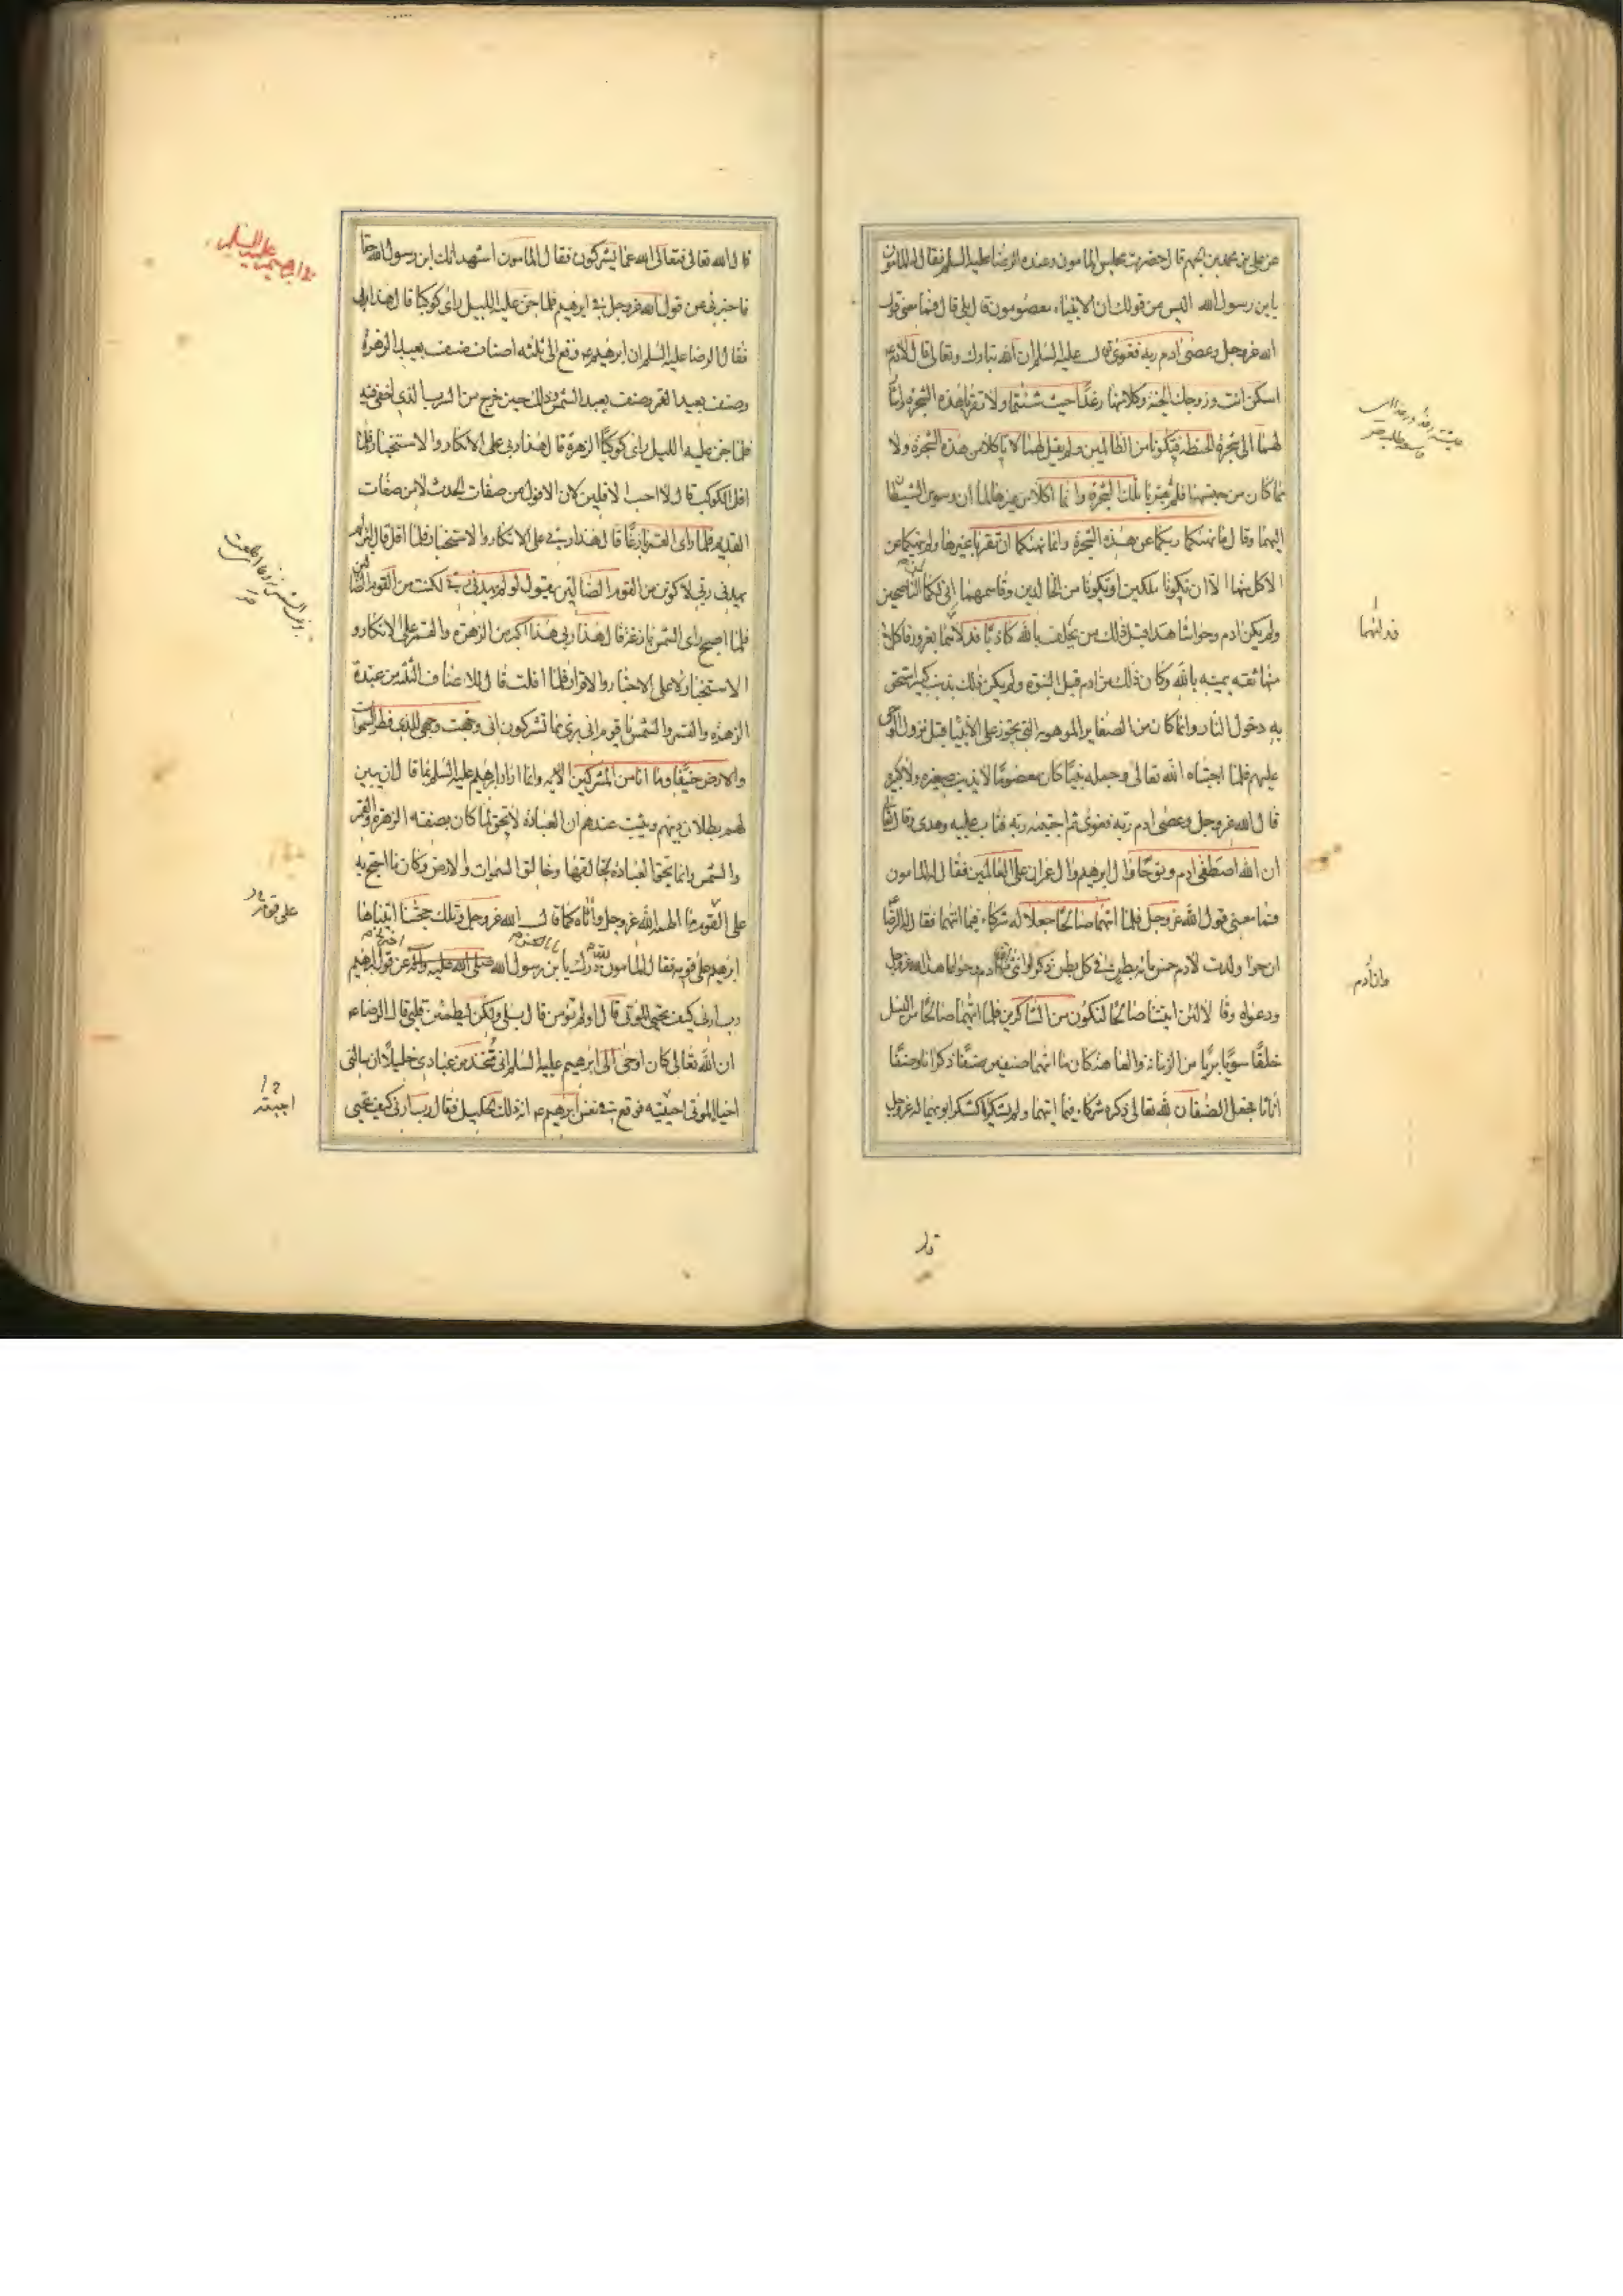 عن علي بن محمد بن الجهم قال حضرت مجلس المامون وعنده الرضا عليه السلم فقال له المامون
يابن رسول الله اليس من قولك ان الانبياء معصومون قال بلى قال فما معنى قول
الله عزوجل وعصى ادم ربه فغوى قال عليه السلم ان الله تبارك وتعالى قال لادم
اسكن انت وزوجك الجنة وكلا منها رغدًا حيث شئتما ولا تقربا هذه الشجرة واشار
لهما الى شجرة الحنطة فتكونا من الظالمين ولم يقل لهما لا تاكلا من هذه الشجرة ولا
مما كان من جنسها فلم يقربا تلك الشجرة وانما اكلا من غيرها لما ان وسوس الشيطان
اليهما وقال ما نهيكما ربكما عن هذه الشجرة وانما نهيكما ان تقربا غيرها ولم ينهكما عن
الاكل منها الا ان تكونا ملكين او تكونا من الخالدين وقاسمهما اني لكما لمن الناصحين
ولم يكن ادم وحوا شاهدا قبل ذلك من يحلف بالله كاذبًا فدلاهما بغرور فاكلا
منها ثقه بيمينه بالله وكان ذلك من ادم قبل النبوة ولم يكن ذلك بذنب كبير استحق
به دخول النار وانما كان من الصغاير الموهوبه التي تجوز على الانبيا قبل نزول الوحى
عليهم فلما اجتباه الله تعالى وجعله نبيًا كان معصومًا لا يذنب صغيره ولا كبيره
قال الله عزوجل وعصى ادم ربه فغوى ثم اجتبيه ربه فتاب عليه وهدى وقال تعالى
ان الله اصطفى ادم ونوحًا وال ابرهيم وال عمران على العالمين فقال له المامون
فما معنى قول الله عزوجل فلما اتيهما صالحًا جعلا له شركاء فيما اتيهما فقال له الرضا
ان حوا ولدت لادم خمس مائه بطن في كل بطن ذكر وانثى وان ادم وحوا عاهدا الله عزوجل
ودعواه وقالا لئن اتيتنا صالحًا لنكونن من الشاكرين فلما اتيهما صالحًا من النسل
خلقًا سويًا بريًا من الزمانة والعاهه كان ما اتيهما صنفين صنفًا ذكرانا وصنفًا
اناثا فجعل الصنفان لله تعالى ذكره شركاء فيما اتيهما ولم يشكراه كشكر ابويهما له عزوجل
فدليهما
وان ادم
قال
قال الله تعالى فتعالى الله عما يشركون فقال المامون اشهد انك ابن رسول الله حقا
فاخبرني عن قول الله عزوجل في ابرهيم فلما جن عليه الليل راى كوكبًا قال هذا ربي
فقال الرضا عليه السلم ان ابرهيم ع وقع الى ثلثه اصناف صنف يعبد الزهرة
وصنف يعبد القمر وصنف يعبد الشمس وذلك حين خرج من السرب الذى اخفى فيه
فلما جن عليه الليل راى كوكبًا الزهرة قال هذا ربي على الانكار والاستخبار فلما
افل الكوكب قال لا احب الافلين لان الافول من صفات الحدث لا من صفات
القديم فلما راى القمر بازغًا قال هذا ربي على الانكار والاستخبار فلما افل قال لئن لم
يهدني ربي لاكونن من القوم الضالين يقول لو لم يهدني ربي لكنت من القوم الضالين
فلما اصبح راى الشمس بازغة قال هذا ربي هذا اكبر من الزهرة والقمر على الانكار و
الاستخبار لا على الاخبار والاقرار فلما افلت قال للاصناف الثلثه من عبدة
الزهرة والقمر والشمس يا قوم اني برئ مما تشركون اني وجهت وجهي للذي فطر السموات
والارض حنيفًا وما انا من المشركين الايه وانما اراد ابرهيم عليه السلم بما قال ان يبين
لهم بطلان دينهم ويثبت عندهم ان العبادة لا تحق لما كان بصفه الزهرة والقمر
والشمس وانما تحق العبادة لخالقها وخالق السموات والارض وكان ما احتج به
على القوم مما الهمه الله عزوجل واتاه كما قال الله عزوجل وتلك حجتنا اتيناها
ابرهيم على قومه فقال المامون لله درك يا بن رسول الله صلى الله عليه واله عن قول ابرهيم
رب ارني كيف تحيي الموتى قال اولم تؤمن قال بلى ولكن ليطمئن قلبي قال الرضا ع
ان الله تعالى كان اوحى الى ابرهيم عليه السلم اني متخذ من عبادي خليلا ان سالني
احيا الموتى احييته فوقع في نفس ابرهيم ع انه ذلك الخليل فقال رب ارني كيف تحيي
على قومه
اجبته